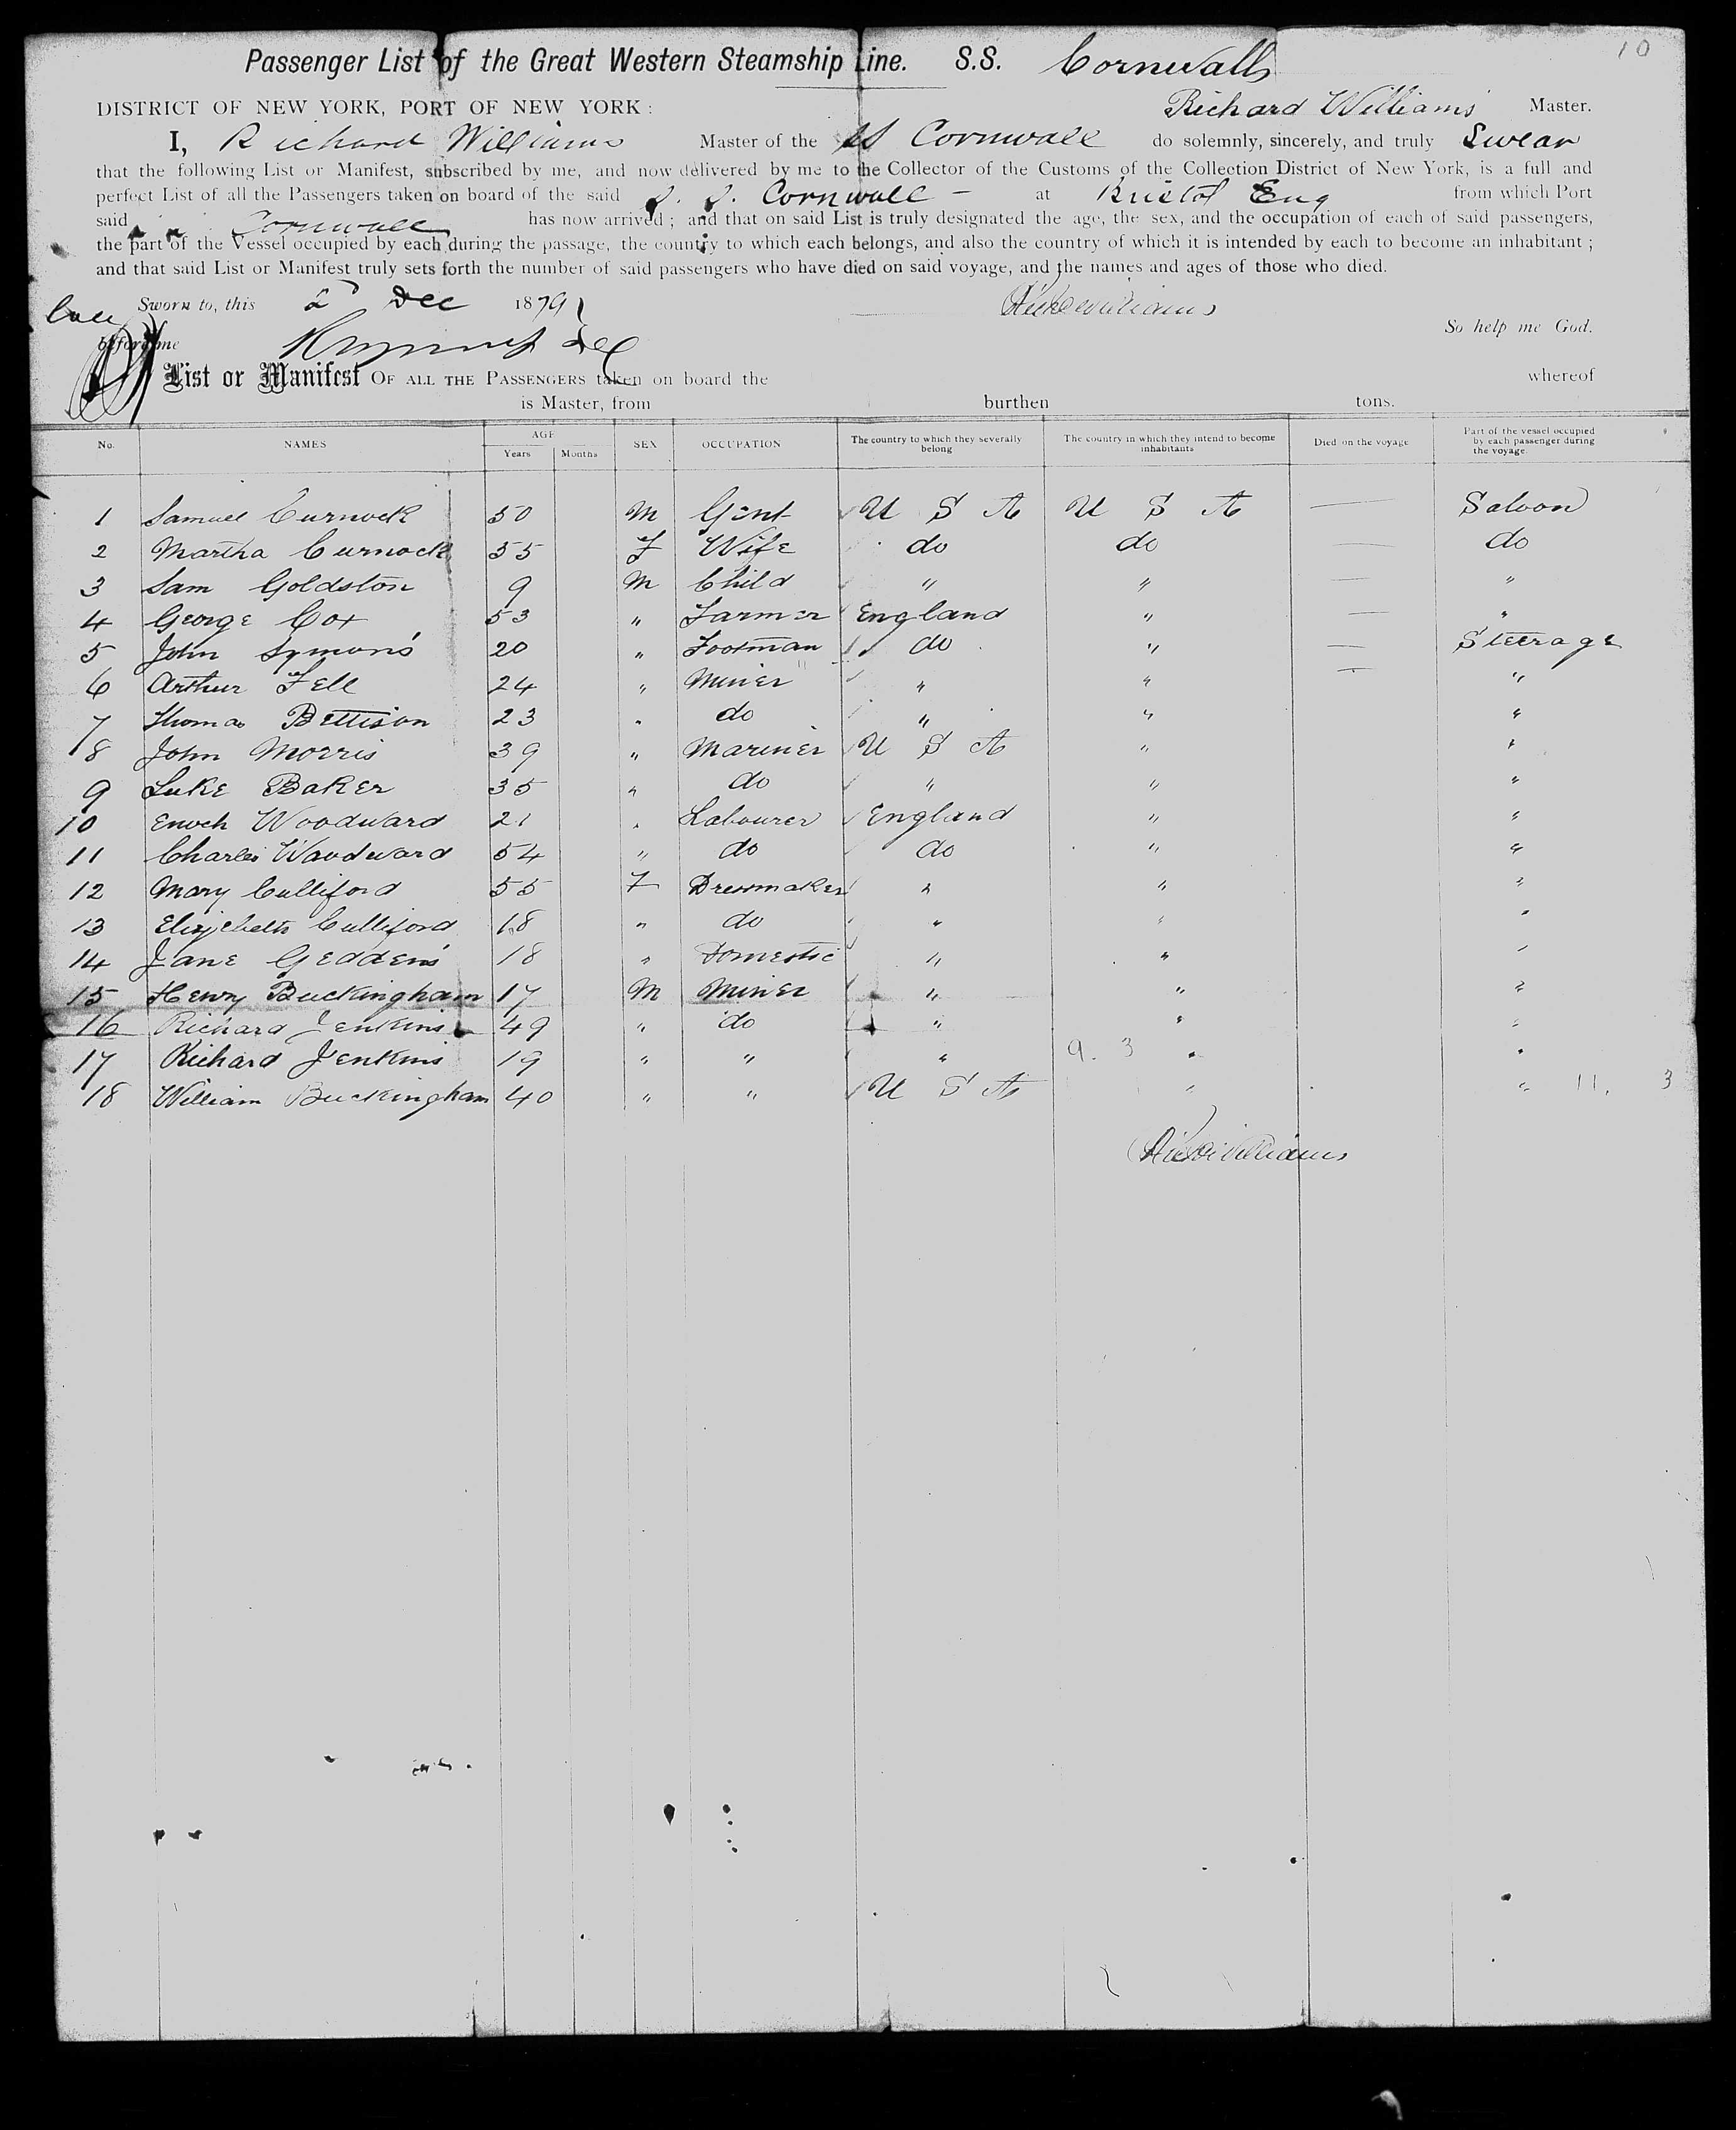 10
Passenger List of the Great Western Steamship Line. S.S. Cornwall
DISTRICT OF NEW YORK, PORT OF NEW YORK: Richard Williams Master.
I, Richard Williams Master of the SS Cornwall do solemnly, sincerely, and truly Swear
that the following List or Manifest, subscribed by me, and now delivered by me to the Collector of the Customs of the Collection District of New York, is a full and
perfect List of all the Passengers taken on board of the said S. S. Cornwall — at Bristol Eng from which Port
said s s Cornwall has now arrived; and that on said List is truly designated the age, the sex, and the occupation of each of said passengers,
the part of the Vessel occupied by each during the passage, the country to which each belongs, and also the country of which it is intended by each to become an inhabitant;
and that said List or Manifest truly sets forth the number of said passengers who have died on said voyage, and the names and ages of those who died.
Sworn to, this 2 Dec 1879 Richd Williams
So help me God.
before me
List or Manifest OF ALL THE PASSENGERS taken on board the whereof
is Master, from burthen tons.
No. NAMES AGE Years Months SEX OCCUPATION The country to which they severally belong The country in which they intend to become inhabitants Died on the voyage Part of the vessel occupied by each passenger during the voyage
1 Samuel Curnock 50 M Gent U S A U S A — Saloon
2 Martha Curnock 55 F Wife do do — do
3 Sam Goldston 9 M Child " " — "
4 George Cox 53 " Farmer England " — "
5 John Symons 20 " Footman do " — Steerage
6 Arthur Fell 24 " Miner " " — "
7 Thomas Bettison 23 " do " " "
8 John Morris 39 " Mariner U S A " "
9 Luke Baker 35 " do " " "
10 Enoch Woodward 21 " Labourer England " "
11 Charles Woodward 54 " do do " "
12 Mary Culliford 55 F Dressmaker " " "
13 Elizebeth Culliford 18 " do " " "
14 Jane Geddens 18 " Domestic " " "
15 Henry Buckingham 17 M Miner " " "
16 Richard Jenkins 49 " do " " "
17 Richard Jenkins 19 " " " 9. 3 " "
18 William Buckingham 40 " " U S A " " 11. 3
Richd Williams